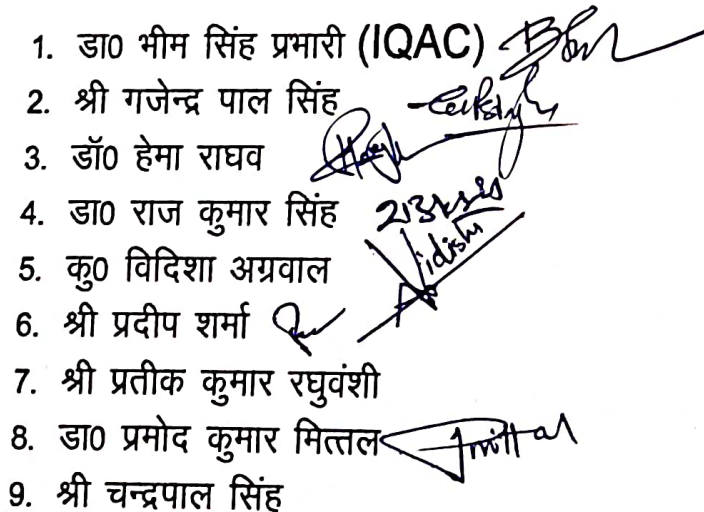 1. डा0 भीम सिंह प्रभारी (IQAC)
2. श्री गजेन्द्र पाल सिंह
3. डॉ0 हेमा राघव
4. डा0 राज कुमार सिंह
5. कु0 विदिशा अग्रवाल Vidisha
6. श्री प्रदीप शर्मा
7. श्री प्रतीक कुमार रघुवंशी
8. डा0 प्रमोद कुमार मित्तल Pmittal
9. श्री चन्द्रपाल सिंह